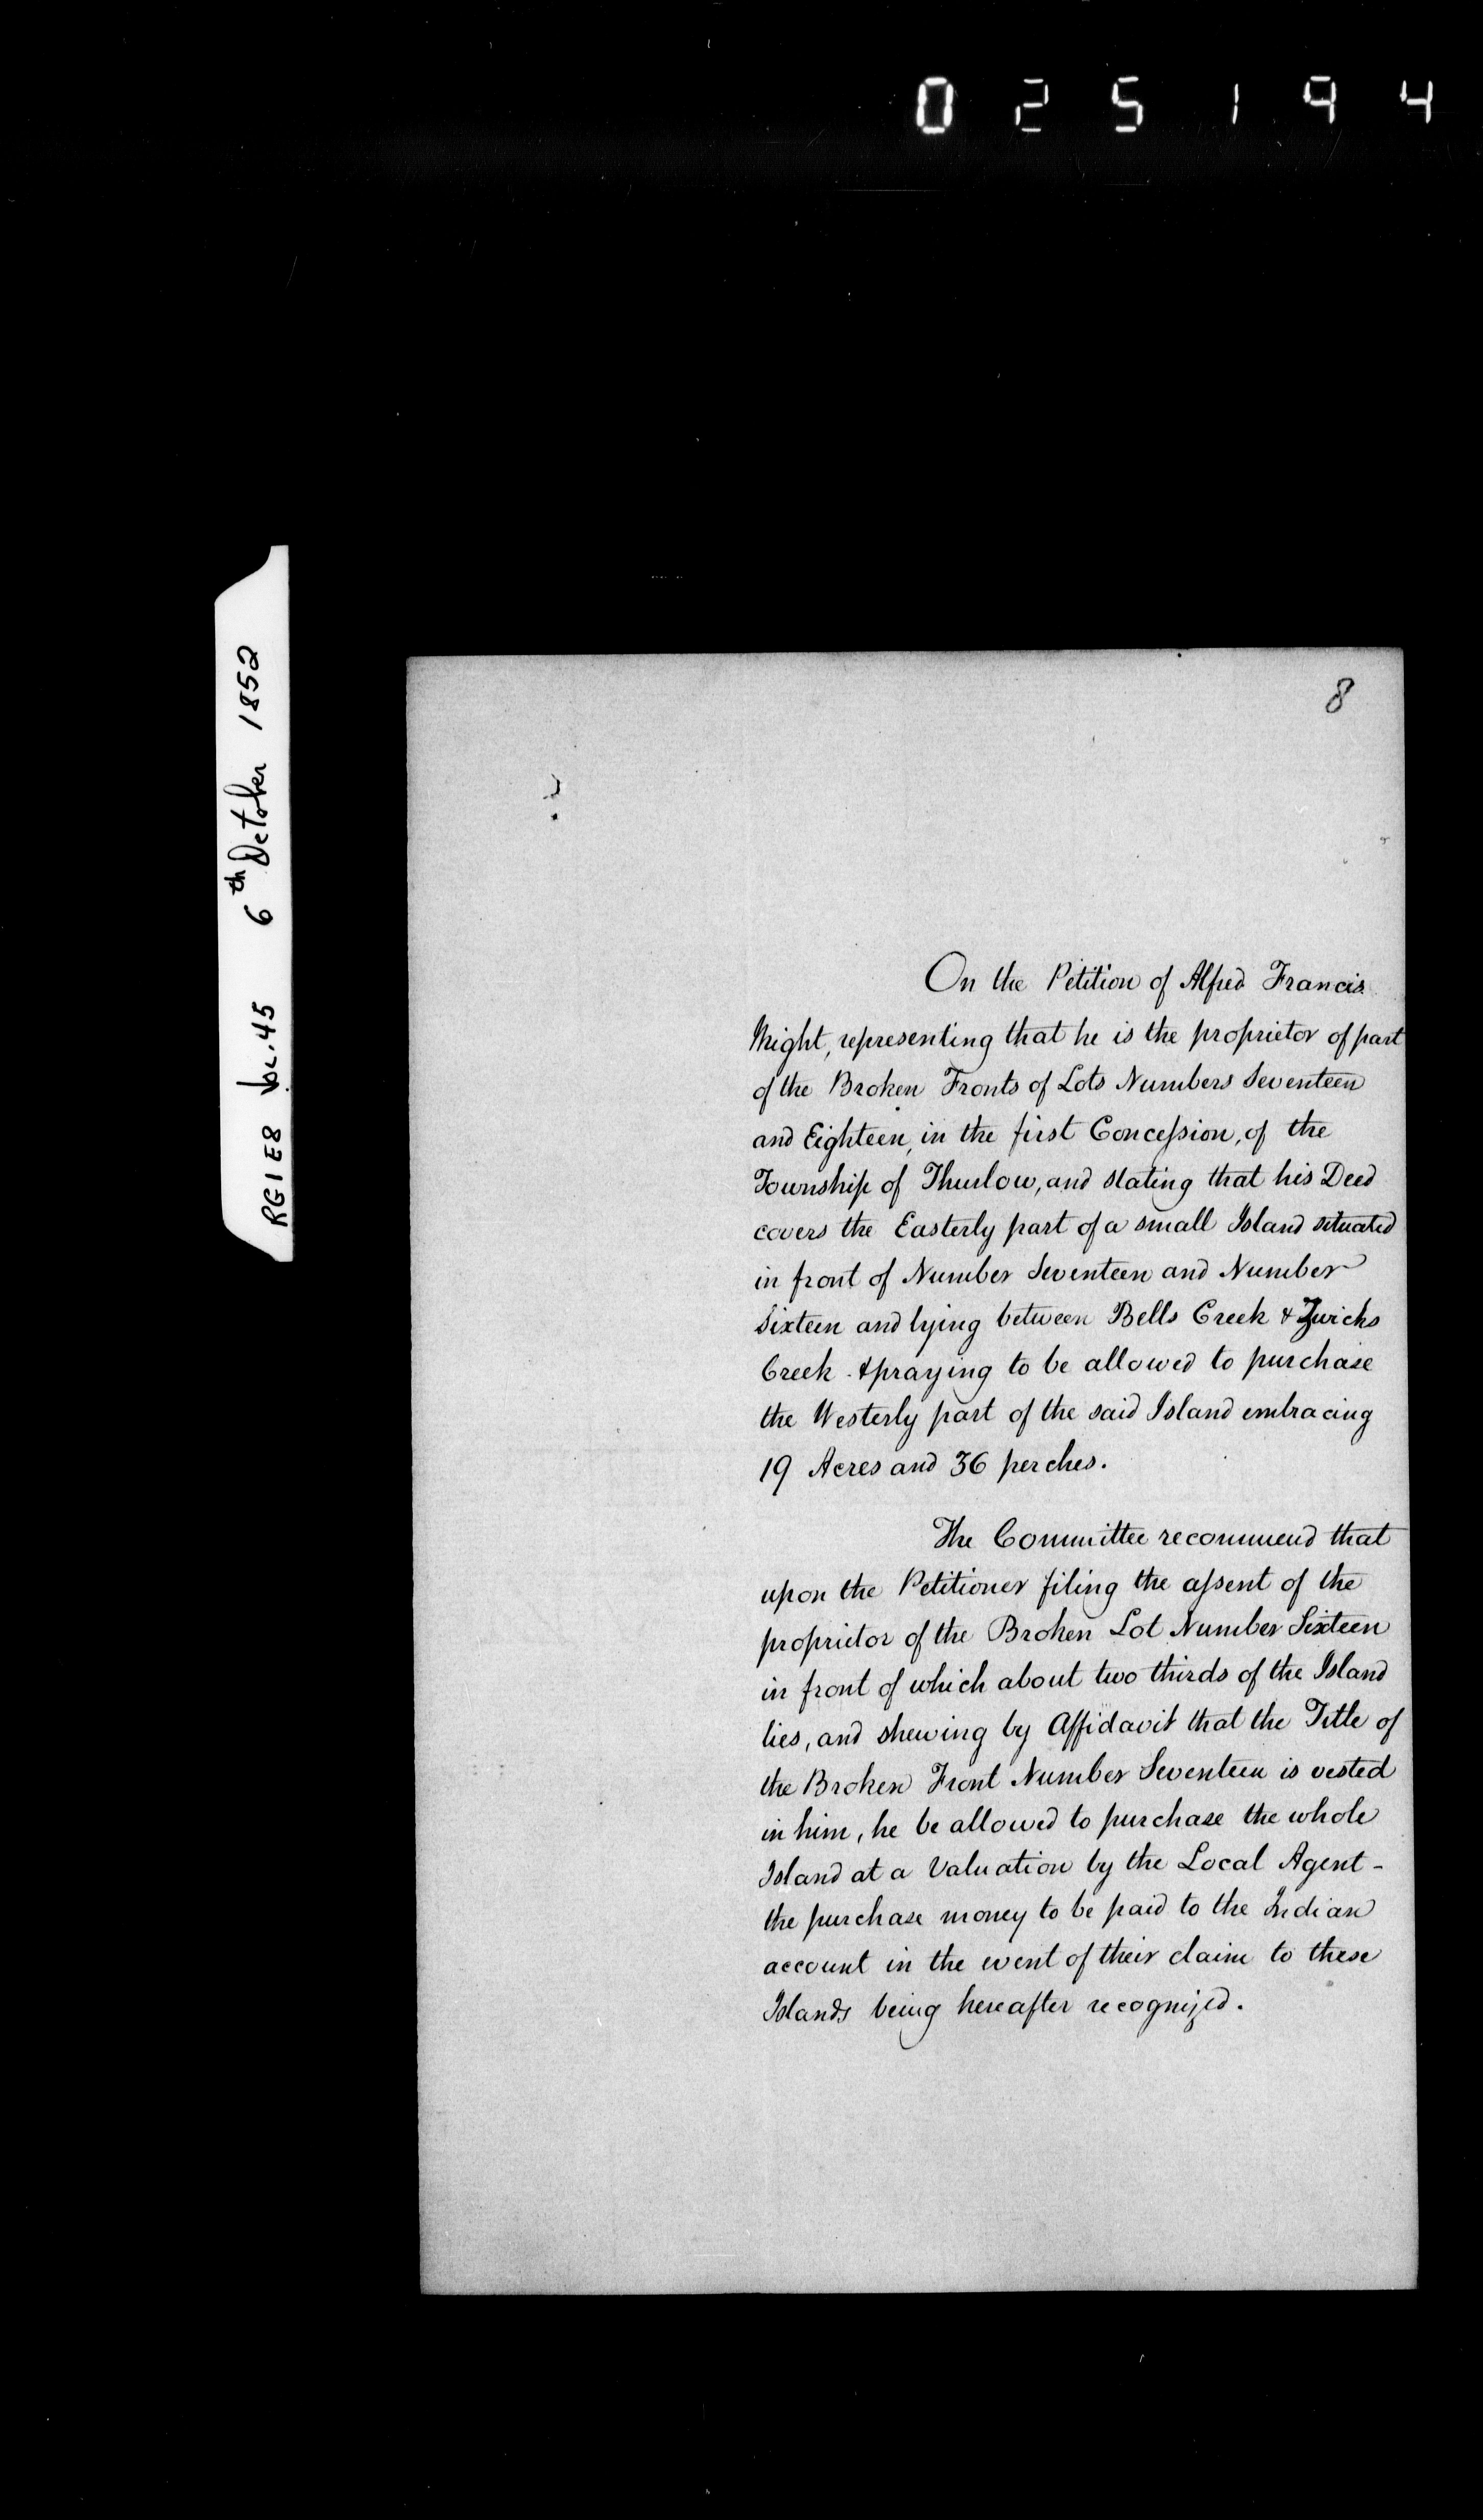 025194
RG1E8 vol. 45 6th October 1852
8
On the Petition of Alfred Francis
representing that he is the proprietor of part
of the Broken Fronts of Lots Numbers Seventeen
and Eighteen, in the first Concession, of the
Township of Thurlow, and stating that his Deed
covers the Easterly part of a small Island situated
in front of Number Seventeen and Number
Sixteen and lying between Bells Creek & Zwicks
Creek & praying to be allowed to purchase
the Westerly part of the said Island embracing
19 Acres and 36 perches.
The Committee recommend that
upon the Petitioner filing the assent of the
proprietor of the Broken Lot Number Sixteen
in front of which about two thirds of the Island
lies, and shewing by Affidavit that the Title of
the Broken Front Number Seventeen is vested
in him, he be allowed to purchase the whole
Island at a Valuation by the Local Agent -
the purchase money to be paid to the Indian
account in the event of their claim to these
Islands being hereafter recognized.